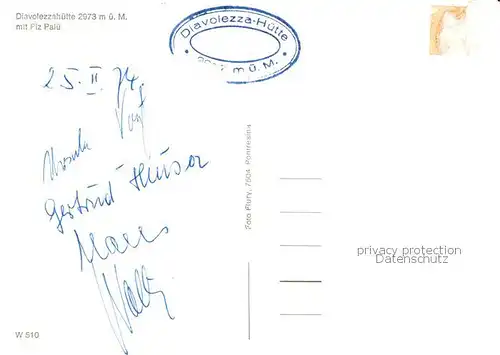 Diavolezzahütte 2973 m ü. M.
mit Piz Palü
Diavolezza-Hütte
m ü. M.
25. II. 74
Ursula
Gertrud Huser
Foto Flury, 7504 Pontresina
privacy protection
Datenschutz
W 510